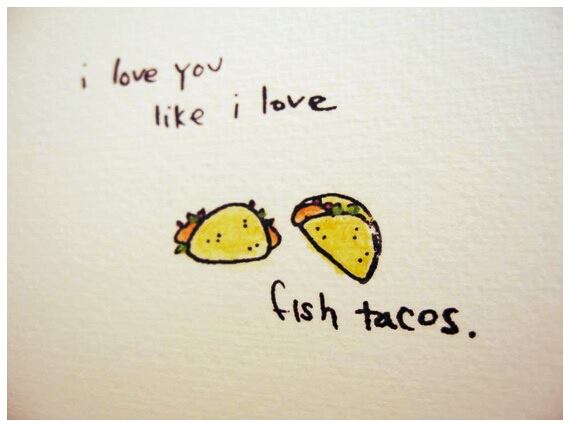 i love you
like i love
fish tacos.